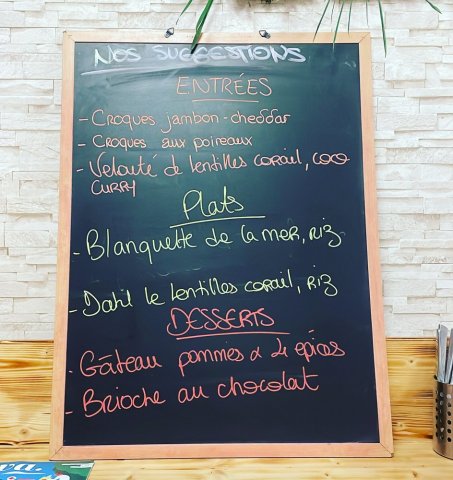 Nos SUGGESTIONS
ENTRÉES
- CROQUES jambon-cheddar
- CROQUES aux poireaux
- Velouté de lentilles corail, coco
CURRY
Plats
- Blanquette de la mer, riz
- Dahl de lentilles corail, riz
DESSERTS
- Gâteau pommes & 4 épices
- Brioche au chocolat
va.